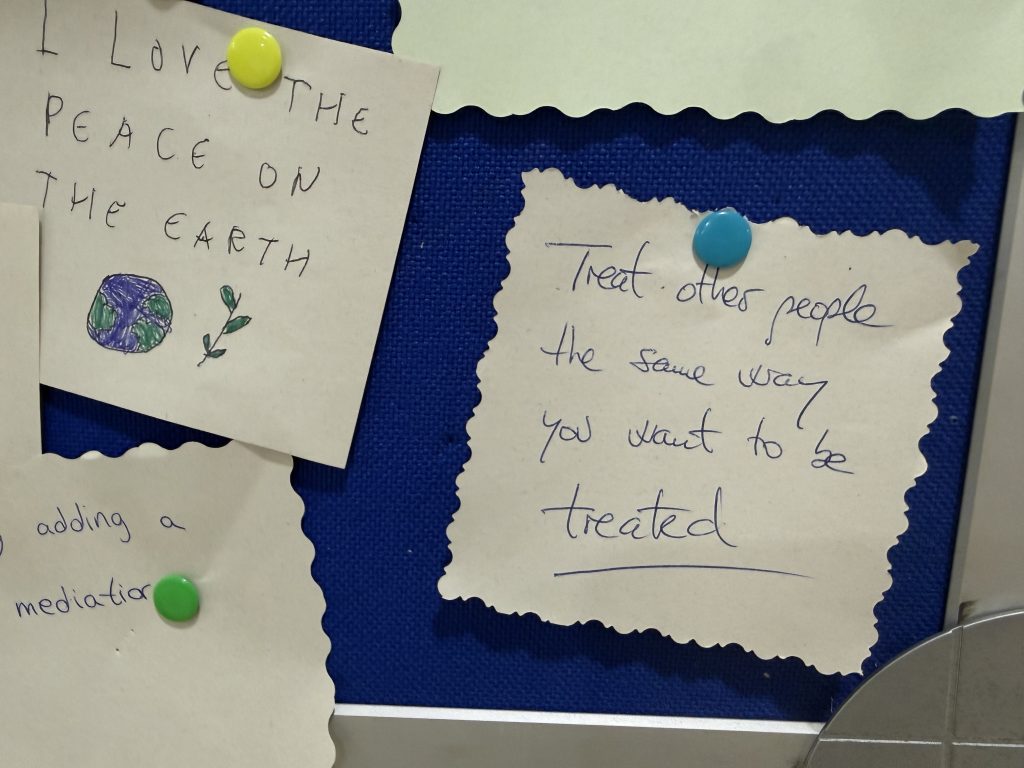 I LOVE THE
PEACE ON
THE EARTH
Treat other people
the same way
you want to be
treated
adding a
mediation